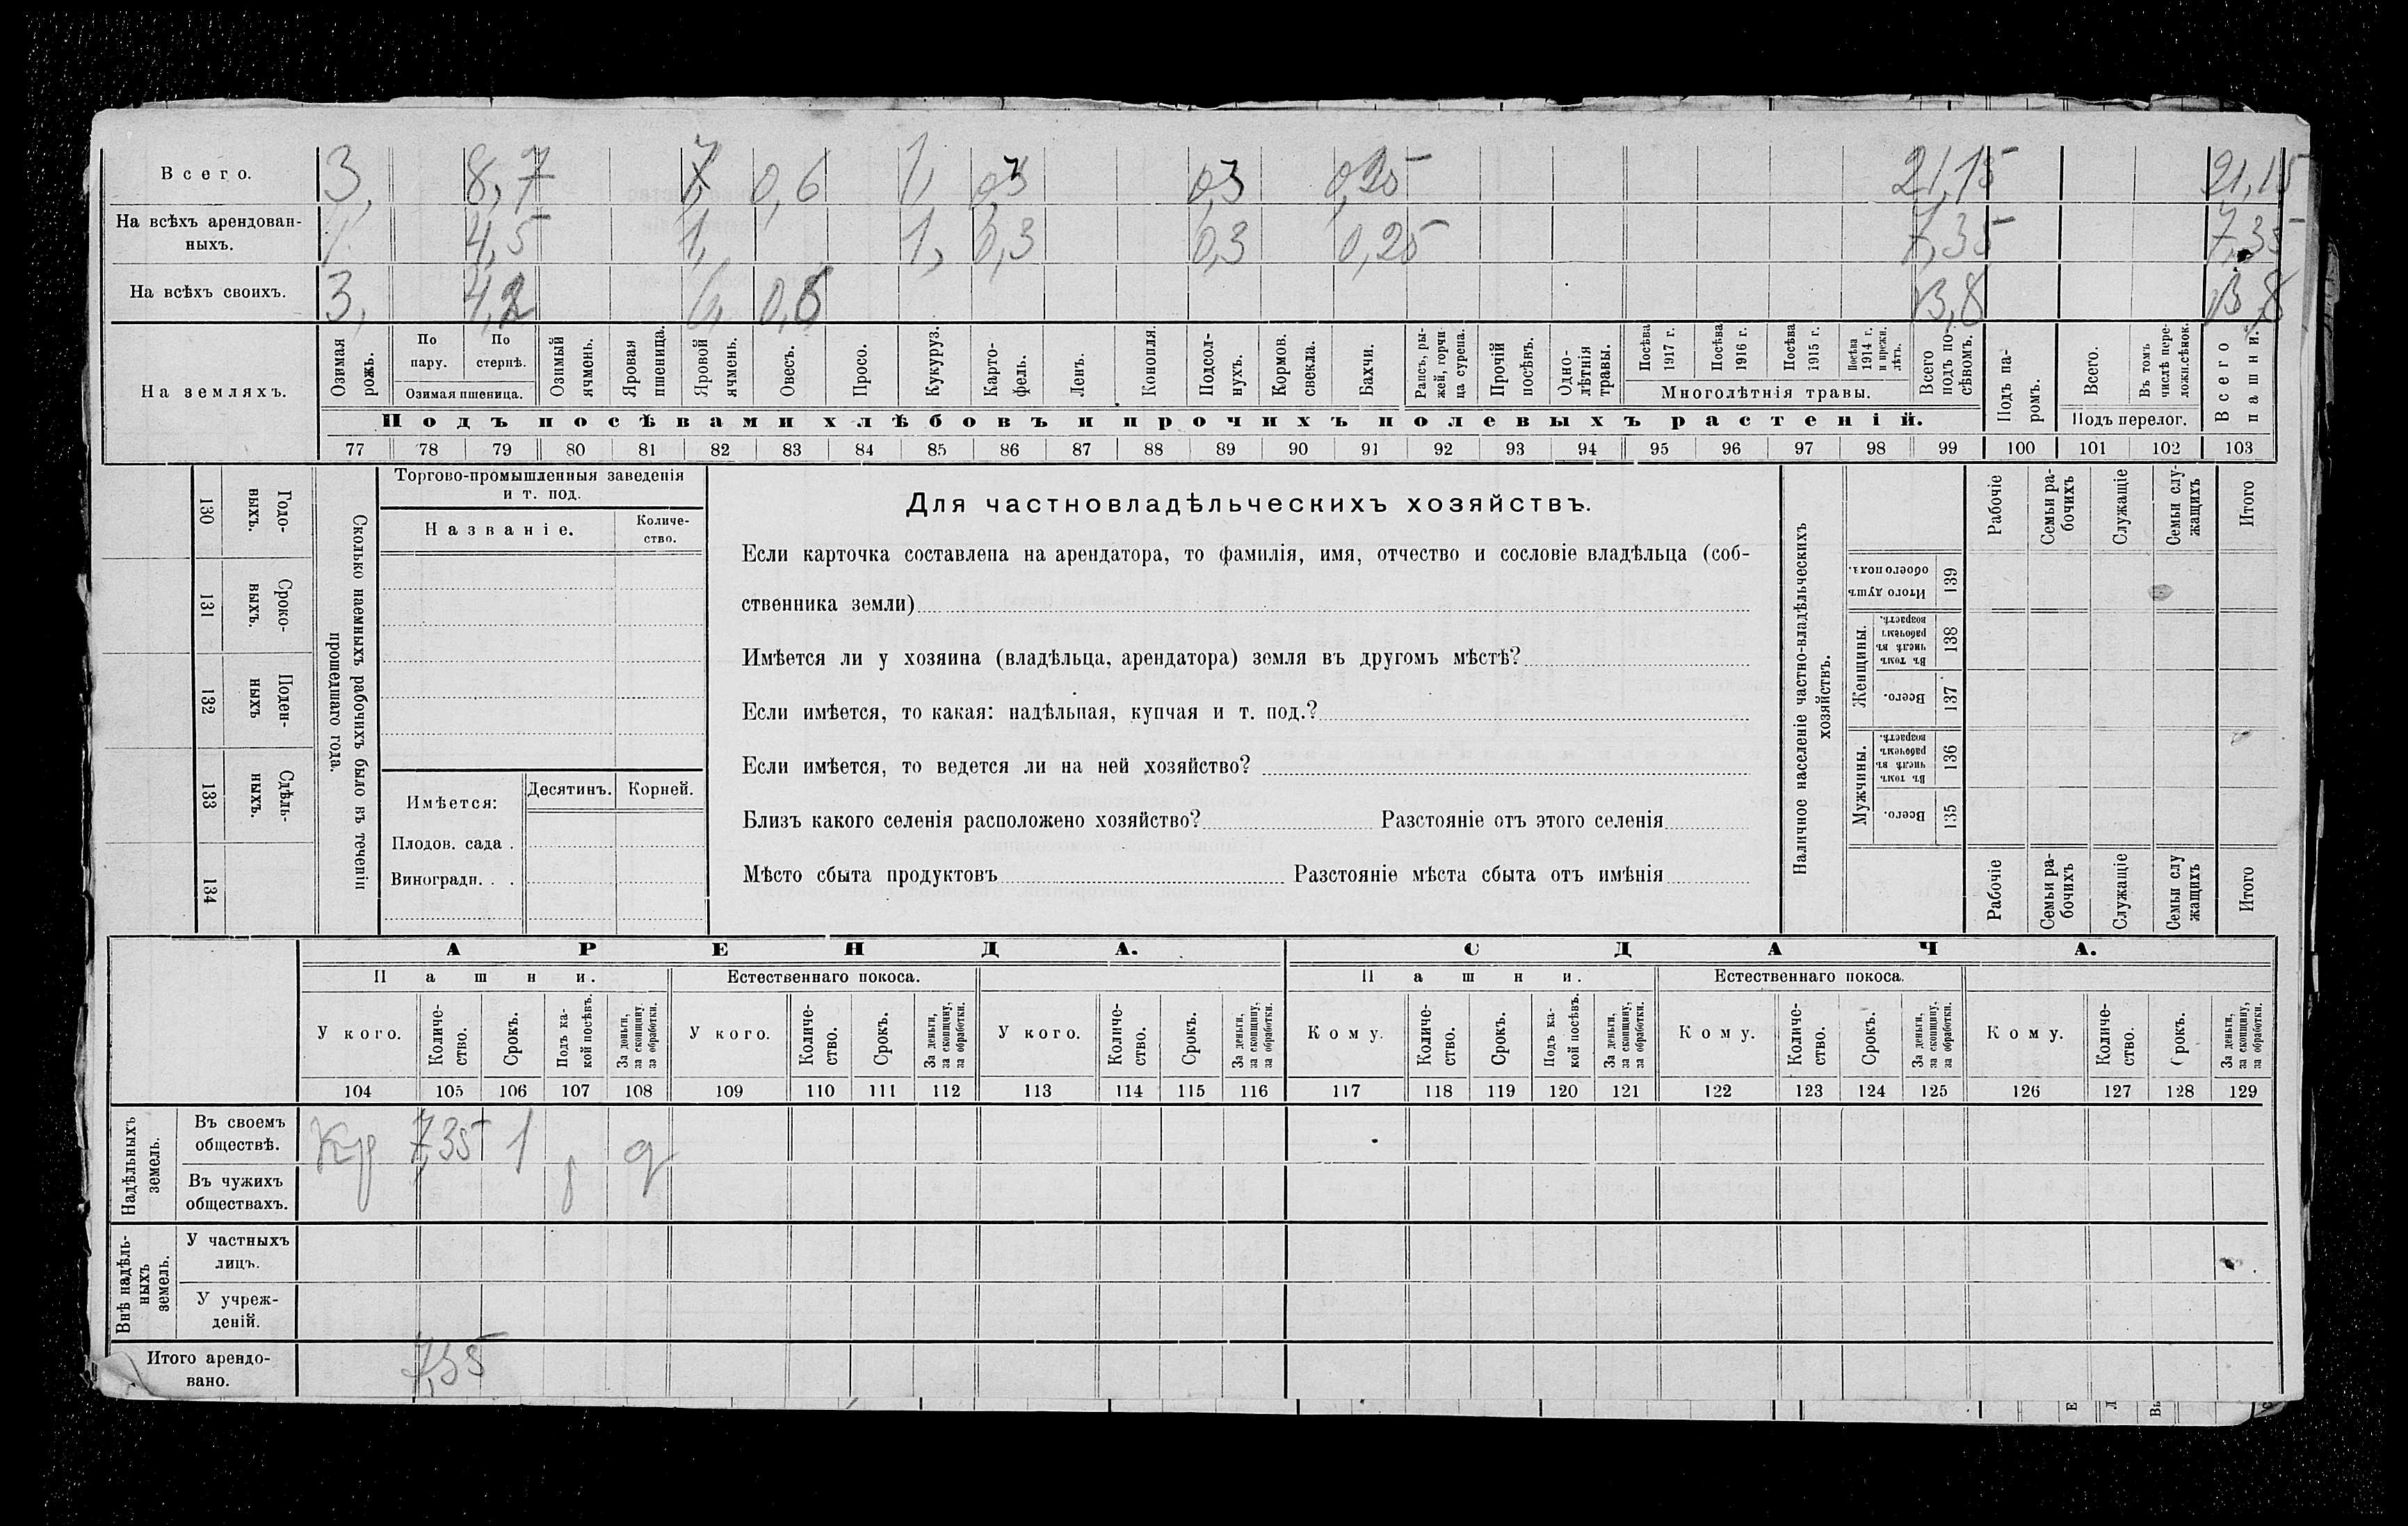 Всего. 3, 8,7 7, 0,6 1, 0,3 0,3 0,25 21,15 21,15
На всѣхъ арендован-
ныхъ. 4,5 1, 1, 0,3 0,3 0,25 7,35 7,35
На всѣхъ своихъ. 3, 4,2 6, 0,6 13,8 13,8
На земляхъ.
Озимая рожь.
По пару.
По стернѣ.
Озимая пшеница.
Озимый ячмень.
Яровая пшеница.
Яровой ячмень.
Овесъ.
Просо.
Кукуруз.
Карто-
фель.
Ленъ.
Конопля.
Подсол-
нухъ.
Кормов. свекла.
Бахчи.
Рапсъ, ры-
жей, горчи
ца сурепа.
Прочій посѣвъ.
Одно-
лѣтнія травы.
Посѣва 1917 г.
Посѣва 1916 г.
Посѣва 1915 г.
Посѣва 1914 г. и прежн. лѣтъ.
Многолѣтнія травы.
Всего подъ по-
сѣвомъ.
Подъ па-
ромъ.
Всего.
Въ томъ числѣ пере-
ложн.сѣнок.
Подъ перелог.
Всего пашни.
Подъ посѣвами хлѣбовъ и прочихъ полевыхъ растеній.
77 78 79 80 81 82 83 84 85 86 87 88 89 90 91 92 93 94 95 96 97 98 99 100 101 102 103
130 Годо-
выхъ.
131 Сроко-
выхъ.
132 Поден-
ныхъ
133 Сдѣль-
ныхъ.
134
Сколько наемныхъ рабочихъ было въ теченіи
прошедшаго года.
Торгово-промышленныя заведенія
и т. под.
Названіе.
Количе-
ство.
Имѣется:
Десятинъ. Корней.
Плодов. сада .
Виноградн. . .
Для частновладѣльческихъ хозяйствъ.
Если карточка составлена на арендатора, то фамилія, имя, отчество и сословіе владѣльца (соб-
ственника земли)
Имѣется ли у хозяина (владѣльца, арендатора) земля въ другомъ мѣстѣ?
Если имѣется, то какая: надѣльная, купчая и т. под.?
Если имѣется, то ведется ли на ней хозяйство?
Близъ какого селенія расположено хозяйство? Разстояніе отъ этого селенія
Мѣсто сбыта продуктовъ Разстояніе мѣста сбыта отъ имѣнія
Наличное населеніе частно-владѣльческихъ
хозяйствъ.
Рабочіе
Семьи ра-
бочихъ
Служащіе
Семьи слу-
жащихъ
Итого
Итого душъ обоего пола. 139
Женщины.
Въ томъ числѣ въ рабочемъ возрастѣ. 138
Всего. 137
Мужчины.
Въ томъ числѣ въ рабочемъ возрастѣ. 136
Всего. 135
Рабочіе
Семьи ра-
бочихъ
Служащіе
Семьи слу
жащихъ
Итого
АРЕНДА. СДАЧА.
Пашни. Естественнаго покоса. Пашни. Естественнаго покоса.
У кого.
Количе-
ство.
Срокъ.
Подъ ка-
кой посѣвъ.
За деньги,
за скопщину
за обработки.
У кого.
Количе-
ство.
Срокъ.
За деньги,
за скопщину,
за обработки.
У кого.
Количе-
ство.
Срокъ.
За деньги,
за скопщину,
за обработки.
Кому.
Количе-
ство.
Срокъ.
Подъ ка-
кой посѣвъ.
За деньги,
за скопщину,
за обработки.
Кому.
Количе-
ство.
Срокъ.
За деньги,
за скопщину.
за обработки.
Кому.
Количе-
ство.
Срокъ.
За деньги,
за скопщину,
за обработки.
104 105 106 107 108 109 110 111 112 113 114 115 116 117 118 119 120 121 122 123 124 125 126 127 128 129
Надѣльныхъ
земель.
Въ своемъ
обществѣ. Кр 7,35 1 д
Въ чужихъ
обществахъ.
Внѣ надѣль-
ныхъ
земель.
У частныхъ
лицъ.
У учреж-
деній.
Итого арендо-
вано. 7,35